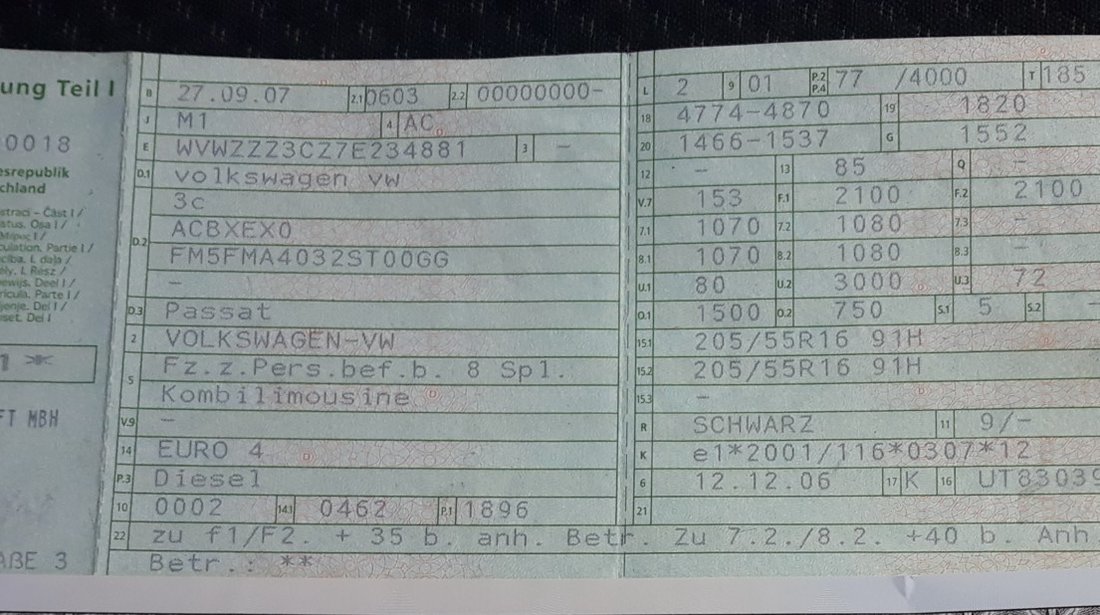 ung Teil I
0018
esrepublik
chland
straci - Část I /
status. Osa I /
culation. Partie I /
ely. I. Rész /
ewijs. Deel I /
ricula. Parte I /
jenje. Del I /
set. Del I
1 *
FT MBH
AßE 3
B 27.09.07 2.1 0603 2.2 00000000-
J M1 4 AC
E WVWZZZ3CZ7E234881 3 -
D.1 Volkswagen VW
D.2 3c
ACBXEX0
FM5FMA4032ST00GG
-
D.3 Passat
2 VOLKSWAGEN-VW
5 Fz.z.Pers.bef.b. 8 Spl.
Kombilimousine
V.9 -
14 EURO 4
P.3 Diesel
10 0002 14.1 0462 P.1 1896
L 2 9 01 P.2 P.4 77 /4000 T 185
18 4774-4870 19 1820
20 1466-1537 G 1552
12 - 13 85 Q -
V.7 153 F.1 2100 F.2 2100
7.1 1070 7.2 1080 7.3 -
8.1 1070 8.2 1080 8.3 -
U.1 80 U.2 3000 U.3 72
O.1 1500 O.2 750 S.1 5 S.2 -
15.1 205/55R16 91H
15.2 205/55R16 91H
15.3 -
R SCHWARZ 11 9/-
K e1*2001/116*0307*12
6 12.12.06 17 K 16 UT83039
21
22 zu f1/F2. + 35 b. anh. Betr. Zu 7.2./8.2. +40 b. Anh
Betr.: **